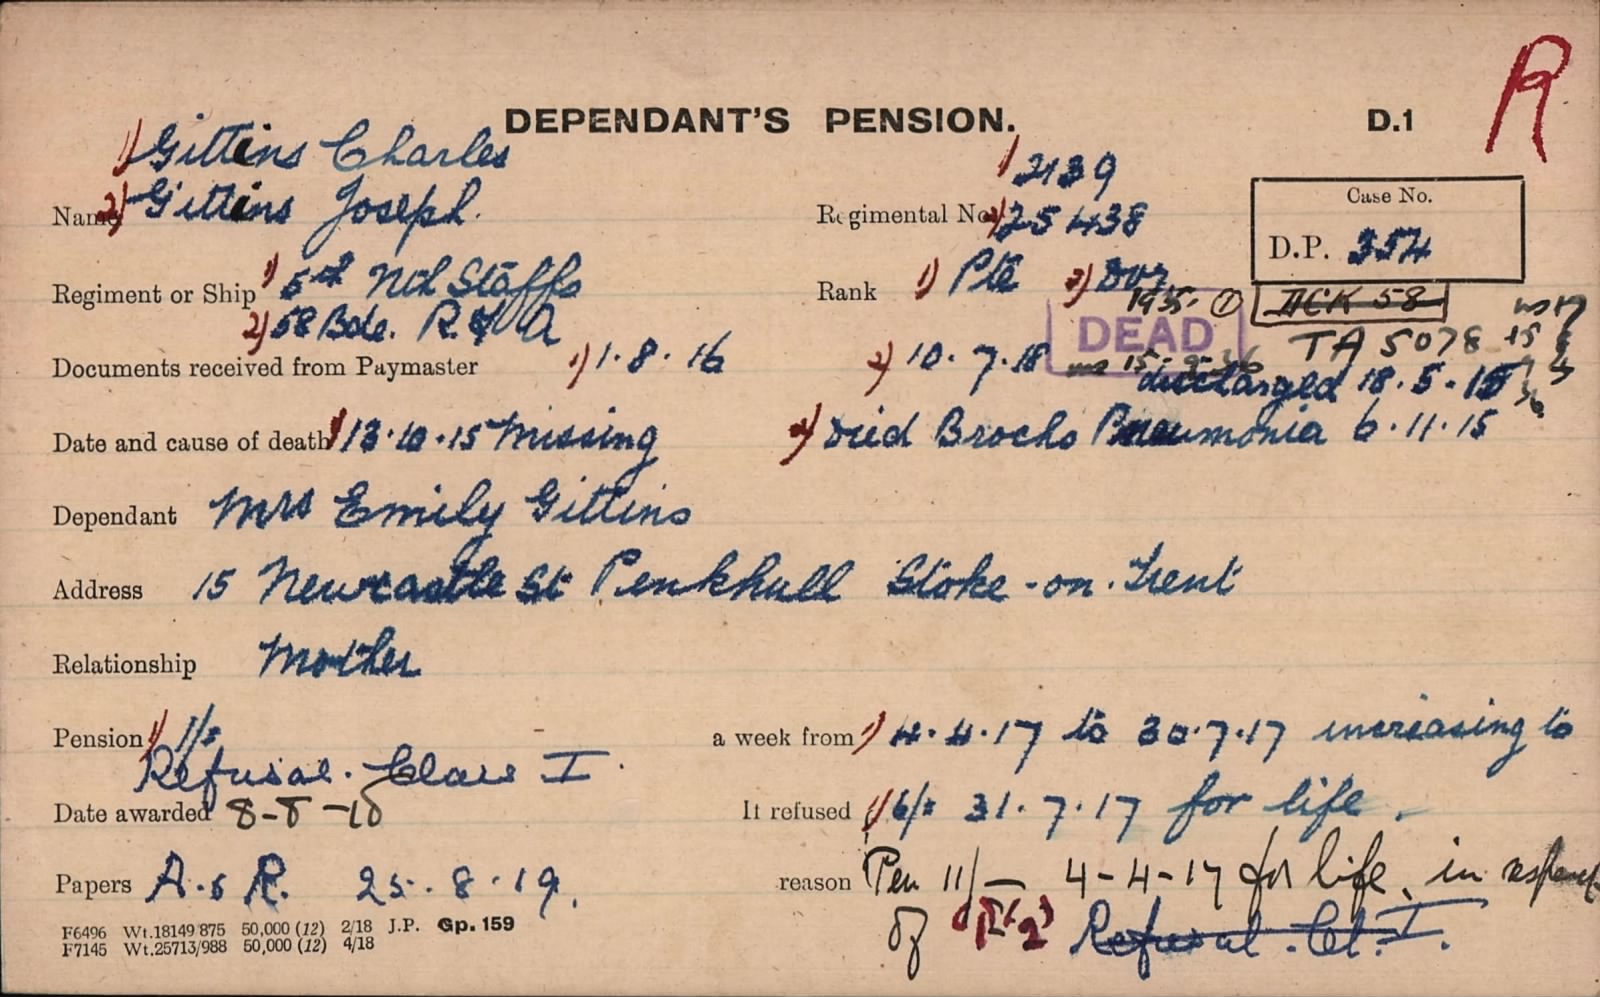 R
DEPENDANT'S PENSION. D.1
1) Gittins Charles 1) 2139
Name 2) Gittins Joseph. Regimental No. 2) 25438
Case No.
D.P. 354
Regiment or Ship 1) 5th Nth Staffs Rank 1) Pte 2) Dvr
2) 58 Bde. R F A 1935. ① ACK 58
DEAD TA 5078
Documents received from Paymaster 1) 1.8.16 2) 10.7.18 15-9-36
discharged 18.5.15
Date and cause of death 1) 13.10.15 Missing 2) Died Brocho Pneumonia 6.11.15
Dependant Mrs Emily Gittins
Address 15 Newcastle St Penkhull Stoke-on-Trent
Relationship Mother
Pension 1) 1/= a week from 1) 4.4.17 to 30.7.17 increasing to
Refusal. Class I.
Date awarded 8-8-18 If refused 1) 6/= 31.7.17 for life.
Papers A.&R. 25.8.19. reason Pen 11/- 4-4-17 for life, in respect
of (1 & 2) Refusal. Cl. I.
F6496 Wt.18149/875 50,000 (12) 2/18 J.P. Gp. 159
F7145 Wt.25713/988 50,000 (12) 4/18